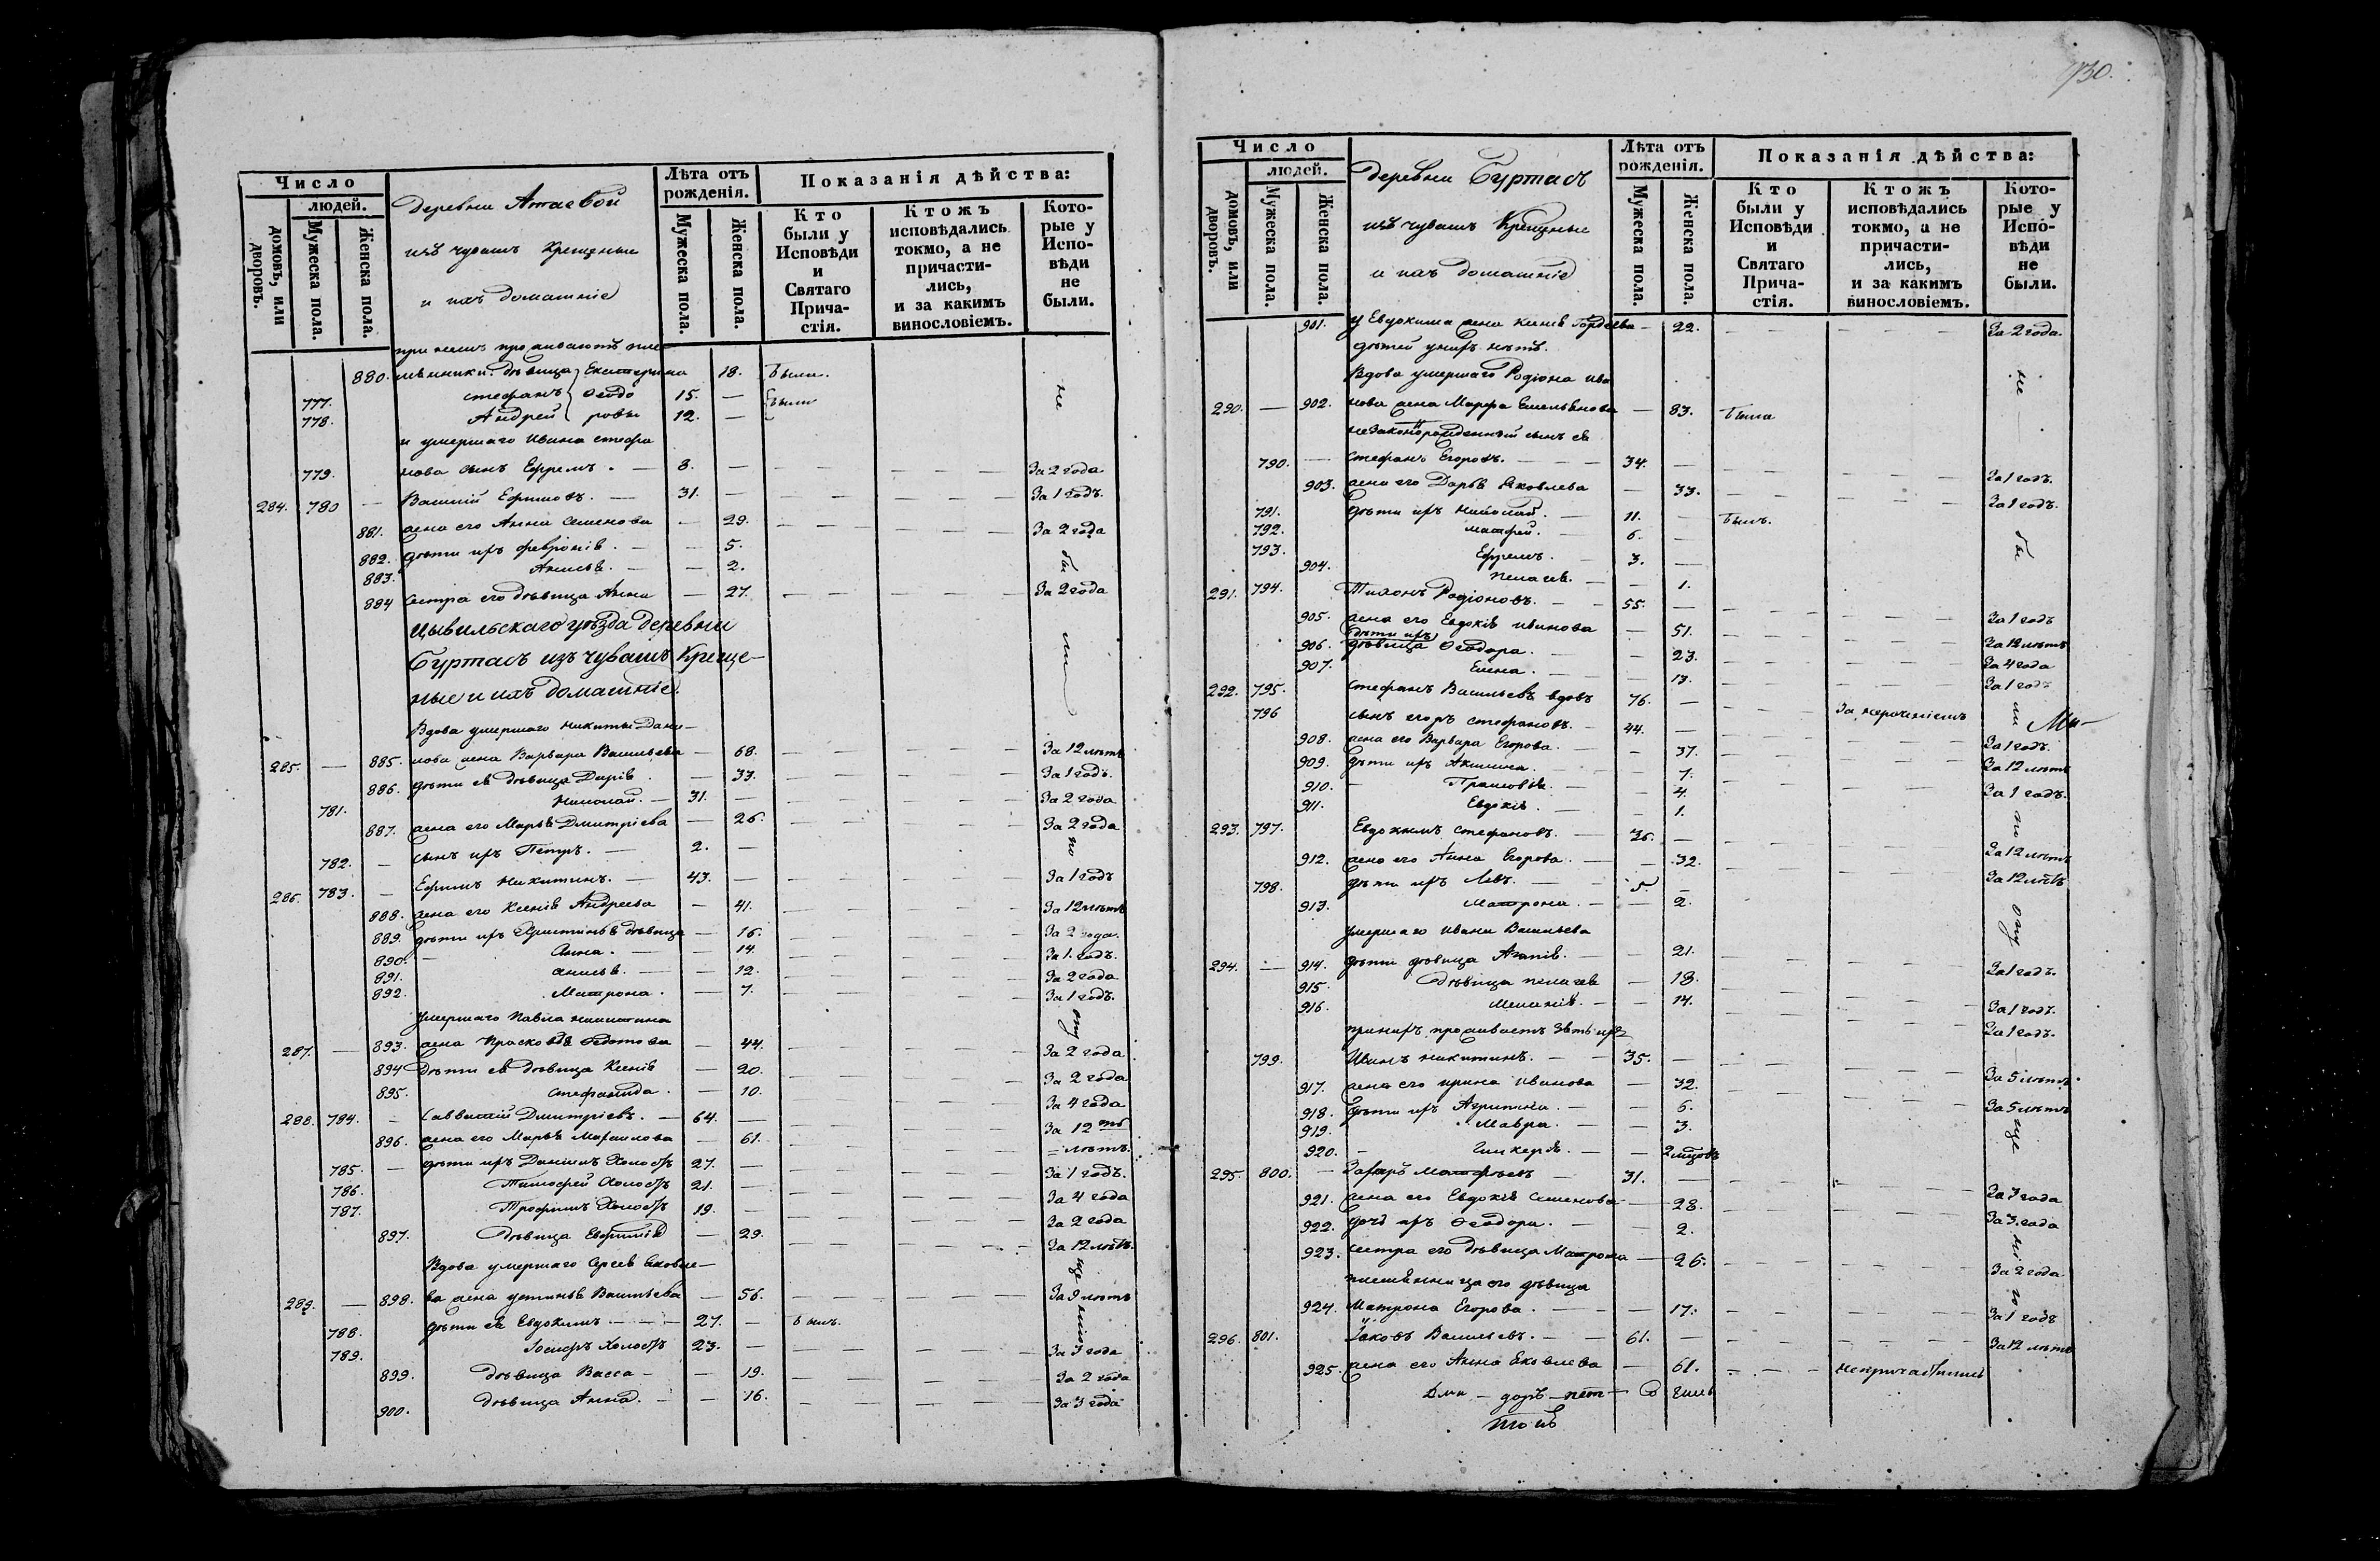 Число
людей.
домовъ, или дворовъ.
Мужеска пола.
Женска пола.
деревни Атаевой
изъ чувашъ Крещеные
и ихъ домашніе
Лѣта отъ рожденія.
Мужеска пола.
Женска пола.
Показанія дѣйства:
Кто были у Исповѣди и Святаго Прича-стія.
Ктожъ исповѣдались токмо, а не причасти-лись, и за какимъ винословіемъ.
Кото-рые у Испо-вѣди не были.
при немъ проживаютъ пле
880. мянники: дѣвица Екатерина 18. была.
777. Стефанъ Ѳеодо 15. — были
778. Андрей ровы 12. —
и умершаго Ивана Стефа
779. нова сынъ Ефремъ. — 8. — За 2 года
284. 780 — Василій Ефимовъ. — 31. — За 1 годъ.
881. жена его Анна Семенова — 29. За 2 года
882. дѣти ихъ Февронія. — 5.
883. Анисья. — 2.
884 сестра его дѣвица Анна — 27. За 2 года
Цывильскаго уѣзда деревни
Буртасъ изъ чувашъ Креще-
ные и ихъ домашніе.
Вдова умершаго Никиты Дани-
285. — 885. лова жена Варвара Васильева — 68. За 12 лѣтъ
886. дѣти ея дѣвица Дарія. — 33. За 1 годъ.
781. Николай. — 31. — За 2 года
887. жена его Марья Дмитріева — 26. За 2 года
782. — сынъ ихъ Петръ. — 2. —
286. 783. — Ефимъ Никитинъ. — 43. — За 1 годъ
888. жена его Ксенія Андреева — 41. За 12 лѣтъ
889. дѣти ихъ Христинья дѣвица — 16. За 2 года.
890. — Анна. — 14. За 1 годъ.
891. Анисья. — 12. За 2 года
892. Матрона. — 7. За 1 годъ.
умершаго Павла Никитина
287. — 893. жена Прасковья Ѳедотова — 44. За 2 года
894 дѣти ея дѣвица Ксенія — 20. За 2 года
895. Стефанида. — 10. За 4 года
288. 784. — Савватій Дмитріевъ. — 64. — За 12 ть
896. жена его Марья Михайлова — 61. лѣтъ.
785. — дѣти ихъ Даніилъ холостъ 27. — За 1 годъ.
786. Тимофей холостъ 21. — За 4 года
787. Трофимъ холостъ 19. — За 2 года
897. дѣвица Евфимія — 29. За 12 лѣтъ.
Вдова умершаго Сергея Яковле-
289. — 898. ва жена Устинья Васильева — 56. За 9 лѣтъ
788. дѣти ея Евдокимъ — 27. — былъ.
789. Іосифъ холостъ 23. — За 3 года
899. дѣвица Васса — 19. За 2 года
900. дѣвица Анна. — 16. За 3 года
не бы ли по
930.
Число
людей.
домовъ, или дворовъ.
Мужеска пола.
Женска пола.
деревни Буртасъ
изъ чувашъ Крещеные
и ихъ домашніе
Лѣта отъ рожденія.
Мужеска пола.
Женска пола.
Показанія дѣйства:
Кто были у Исповѣди и Святаго Прича-стія.
Ктожъ исповѣдались токмо, а не причасти-лись, и за какимъ винословіемъ.
Кото-рые у Испо-вѣди не были.
901. у Евдокима жена Ксенія Гордѣева — 22. За 2 года
дѣтей у нихъ нѣтъ.
Вдова умершаго Родіона Ива
290. — 902. нова жена Марфа Емельянова — 83. была
незаконорожденный сынъ ея
790. — Стефанъ Егоровъ. — 34. — За 1 годъ.
903. жена его Дарья Яковлева — 33. За 1 годъ.
791. дѣти ихъ Николай. — 11. — былъ.
792. Матфей. — 6. —
793. Ефремъ. — 3. —
904. Пелагея. — 1.
291. 794. Тихонъ Родіоновъ. — 55. — За 1 годъ
905. жена его Евдокія Иванова — 51. За 12 лѣтъ
дѣти ихъ
906. дѣвица Ѳеодора. — 23. За 4 года
907. Елена. — 13. За 1 годъ
292. 795. Стефанъ Васильевъ вдовъ 76. — За нераченіемъ
796 сынъ его Егоръ Стефановъ. — 44. — За 1 годъ.
908. жена его Варвара Егорова. — 37. За 12 лѣтъ
909. дѣти ихъ Акилина. — 7. За 1 годъ.
910. — Прасковья. — 4.
911. Евдокія. — 1.
293. 797. Евдокимъ Стефановъ. — 36. — За 12 лѣтъ
912. жена его Анна Егорова. — 32. За 12 лѣтъ
798. дѣти ихъ Левъ. — 5. —
913. Матрона. — 2.
умершаго Ивана Васильева
294. — 914. дѣти дѣвица Агапія. — 21. За 1 годъ.
915. дѣвица Пелагея — 18. За 1 годъ.
916. Меланія. — 14. За 1 годъ.
при нихъ проживаетъ зять ихъ
799. Иванъ Никитинъ. — 35. — За 5 лѣтъ.
917. жена его Ирина Иванова — 32. За 5 лѣтъ
918. дѣти ихъ Агрипина. — 6.
919. Мавра. — 3.
920. — Гликерія. — 2 мѣсяцовъ
295. 800. — Захаръ Матфѣевъ — 31. — За 3 года
921. жена его Евдокія Семенова — 28. За 3 года
922. дочь ихъ Ѳеодора. — 2.
923. сестра его дѣвица Матрона — 26. За 2 года
племянница его дѣвица
924. Матрона Егорова. — 17. За 1 годъ
296. 801. Іаковъ Васильевъ. — 61. — За 12 лѣтъ
925 жена его Анна Яковлева — 61. непричастились